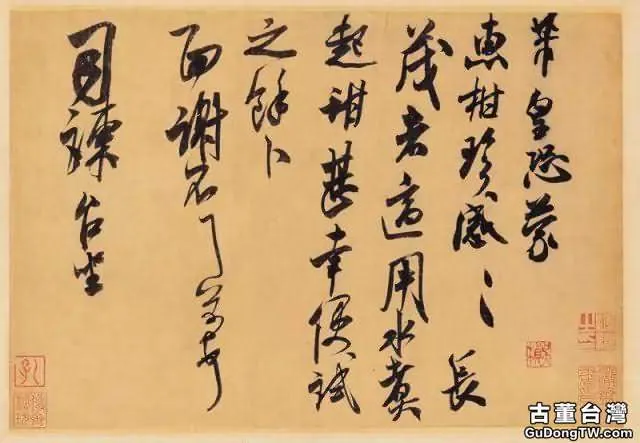 芾皇恐蒙
惠柑珍感〻長
茂者適用水煮
起甜甚幸便試
之餘卜
面謝不一一芾頓首
司諫台坐
古董台灣
GuDongTW.com